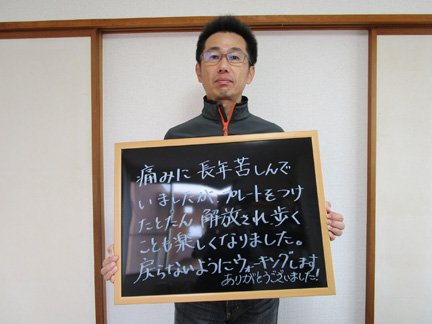 痛みに長年苦しんで
いましたが、プレートをつけ
たとたん、解放され歩く
ことも楽しくなりました。
戻らないようにウォーキングします
ありがとうございました!